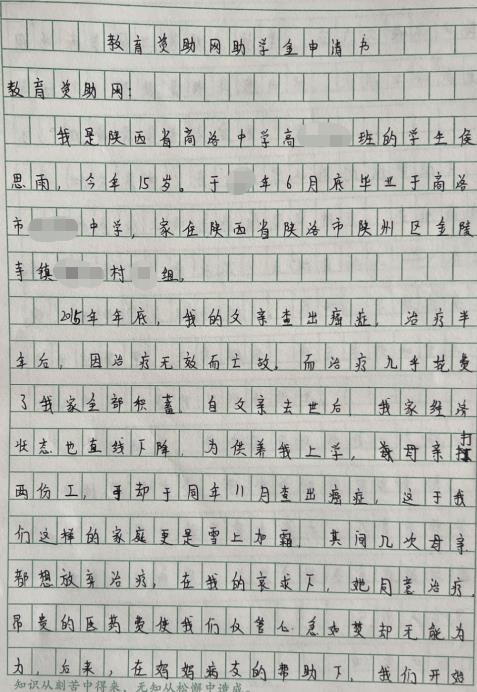 教育资助网助学金申请书
教育资助网：
我是陕西省商洛中学高 班的学生侯
思雨，今年15岁。于 年6月底毕业于商洛
市 中学，家住陕西省陕洛市陕州区金陵
寺镇 村 组。
2015年年底，我的父亲查出癌症，治疗半
年后，因治疗无效而亡故。而治疗几乎花费
了我家全部积蓄。自父亲去世后，我家经济
状态也直线下降，为供养我上学，母亲打
两份工，却于同年11月查出癌症，这于我
们这样的家庭更是雪上加霜。其间几次母亲
都想放弃治疗，在我的哀求下，她同意治疗，
昂贵的医药费使我们仅管心急如焚却无能为
力，后来，在妈妈病友的帮助下，我们开始
知识从刻苦中得来，无知从松懈中造成。